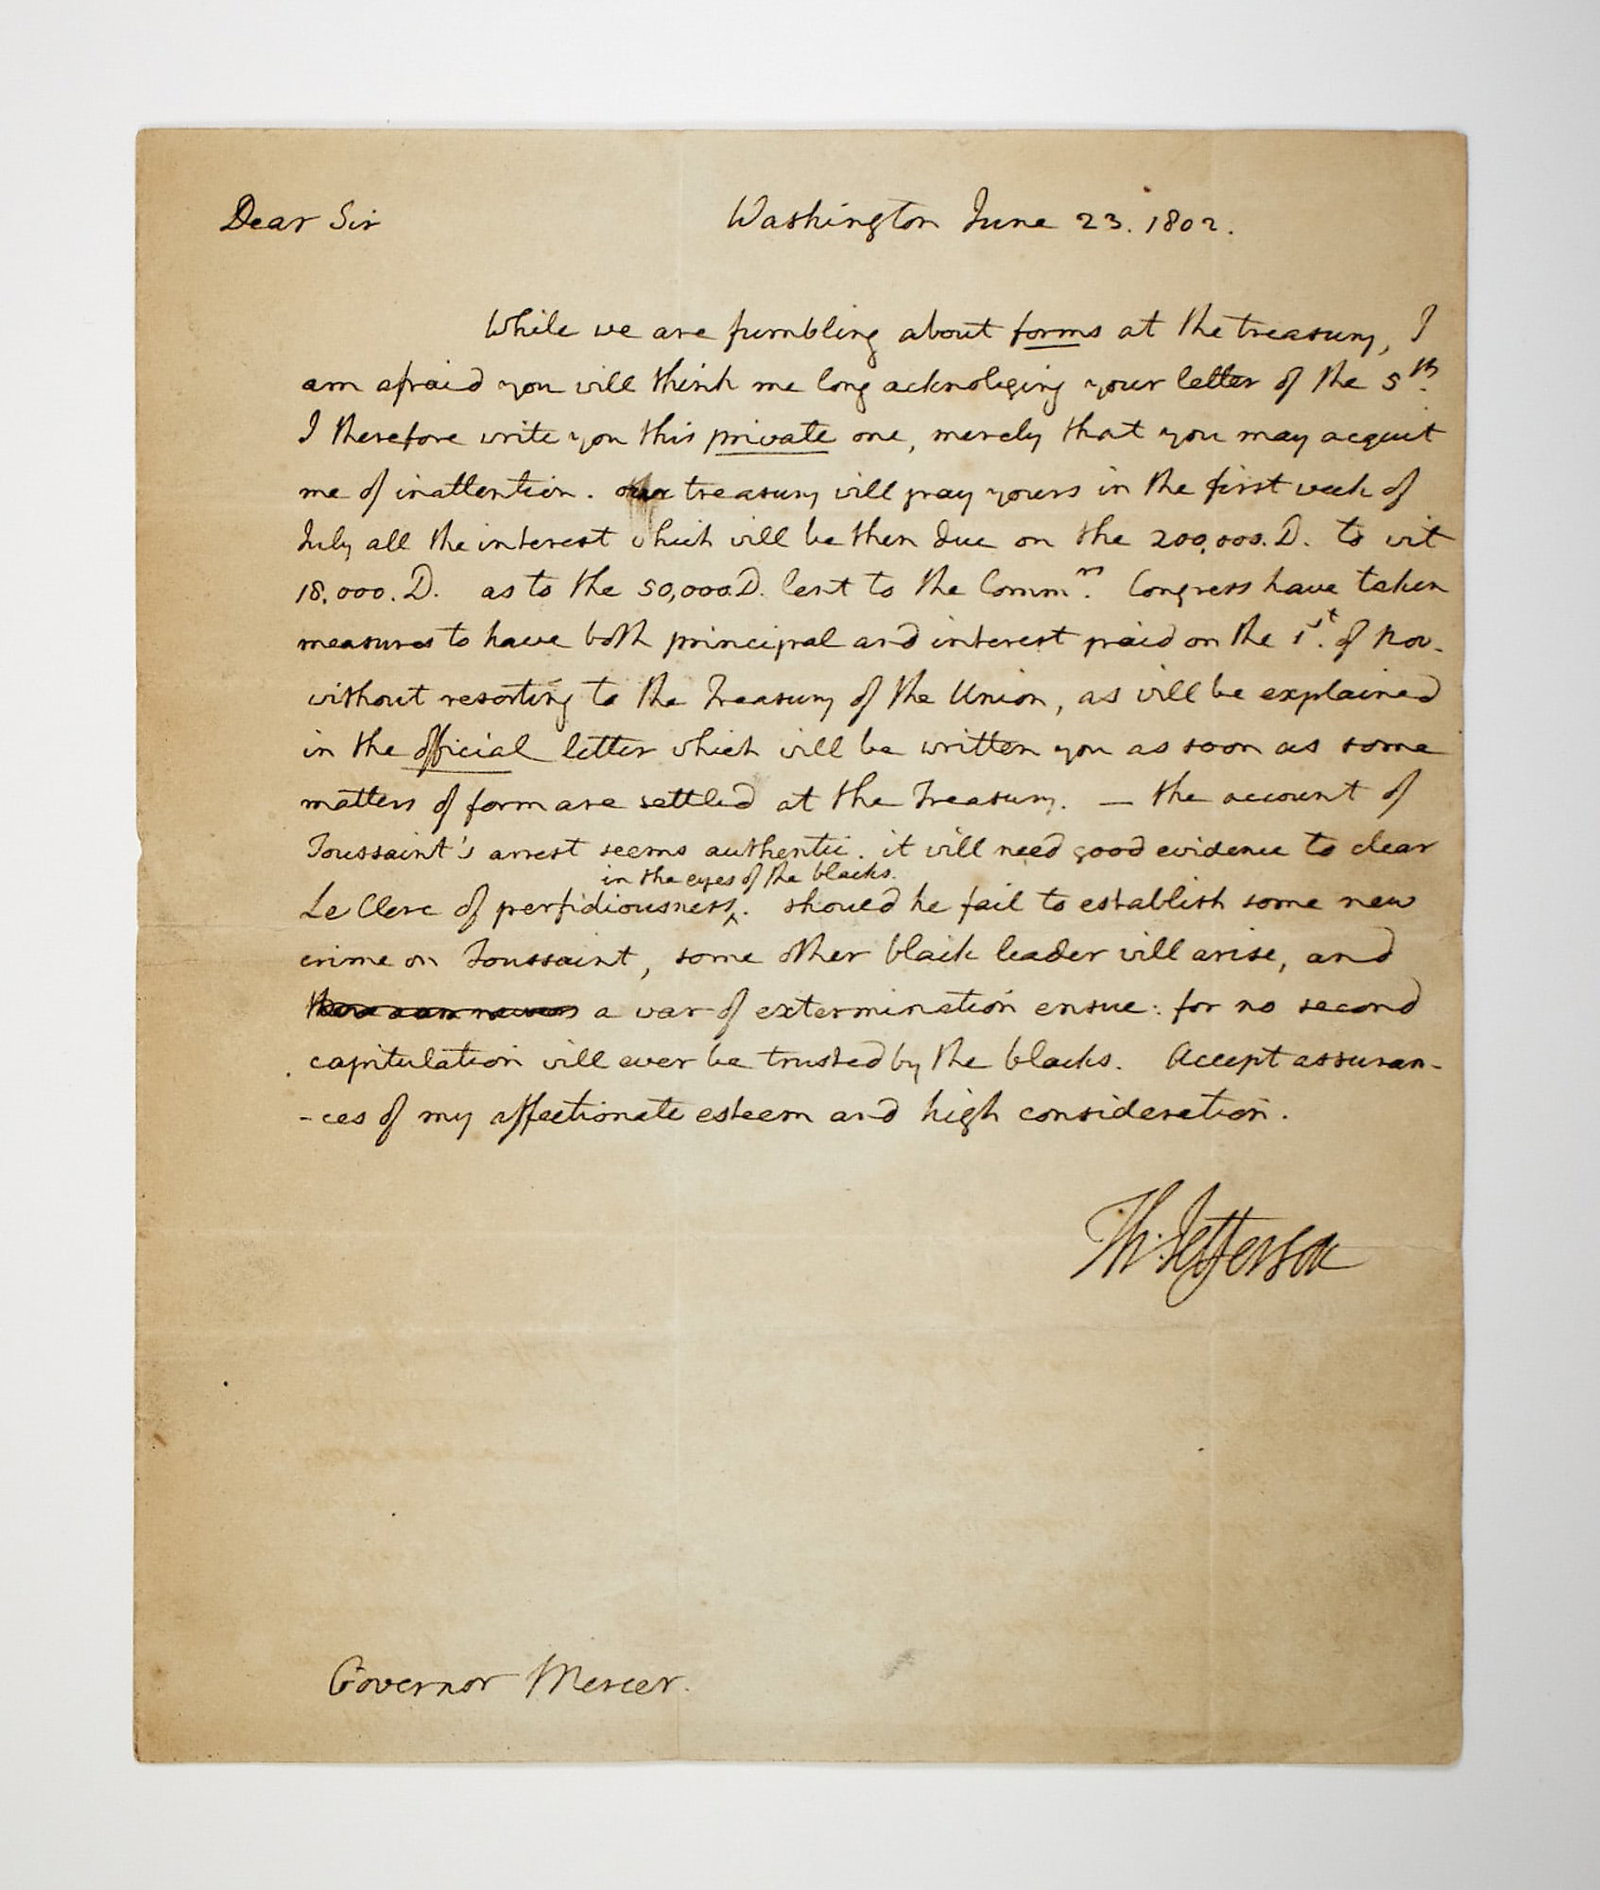 Dear Sir Washington June 23. 1802.
While we are fumbling about forms at the treasury, I
am afraid you will think me long acknoleging your letter of the 5th.
I therefore write you this private one, merely that you may acquit
me of inattention. our treasury will pay yours in the first week of
July all the interest which will be then due on the 200,000. D. to wit
18,000. D. as to the 50,000 D. lent to the Commrs. Congress have taken
measures to have both principal and interest paid on the 1st. of Nov.
without resorting to the Treasury of the Union, as will be explained
in the official letter which will be written you as soon as some
matters of form are settled at the Treasury. — the account of
Toussaint's arrest seems authentic. it will need good evidence to clear
in the eyes of the blacks.
Le Clerc of perfidiousness‸. should he fail to establish some new
crime on Toussaint, some other black leader will arise, and
a war of extermination ensue: for no second
capitulation will ever be trusted by the blacks. Accept assuran-
-ces of my affectionate esteem and high consideration.
Th: Jefferson
Governor Mercer.